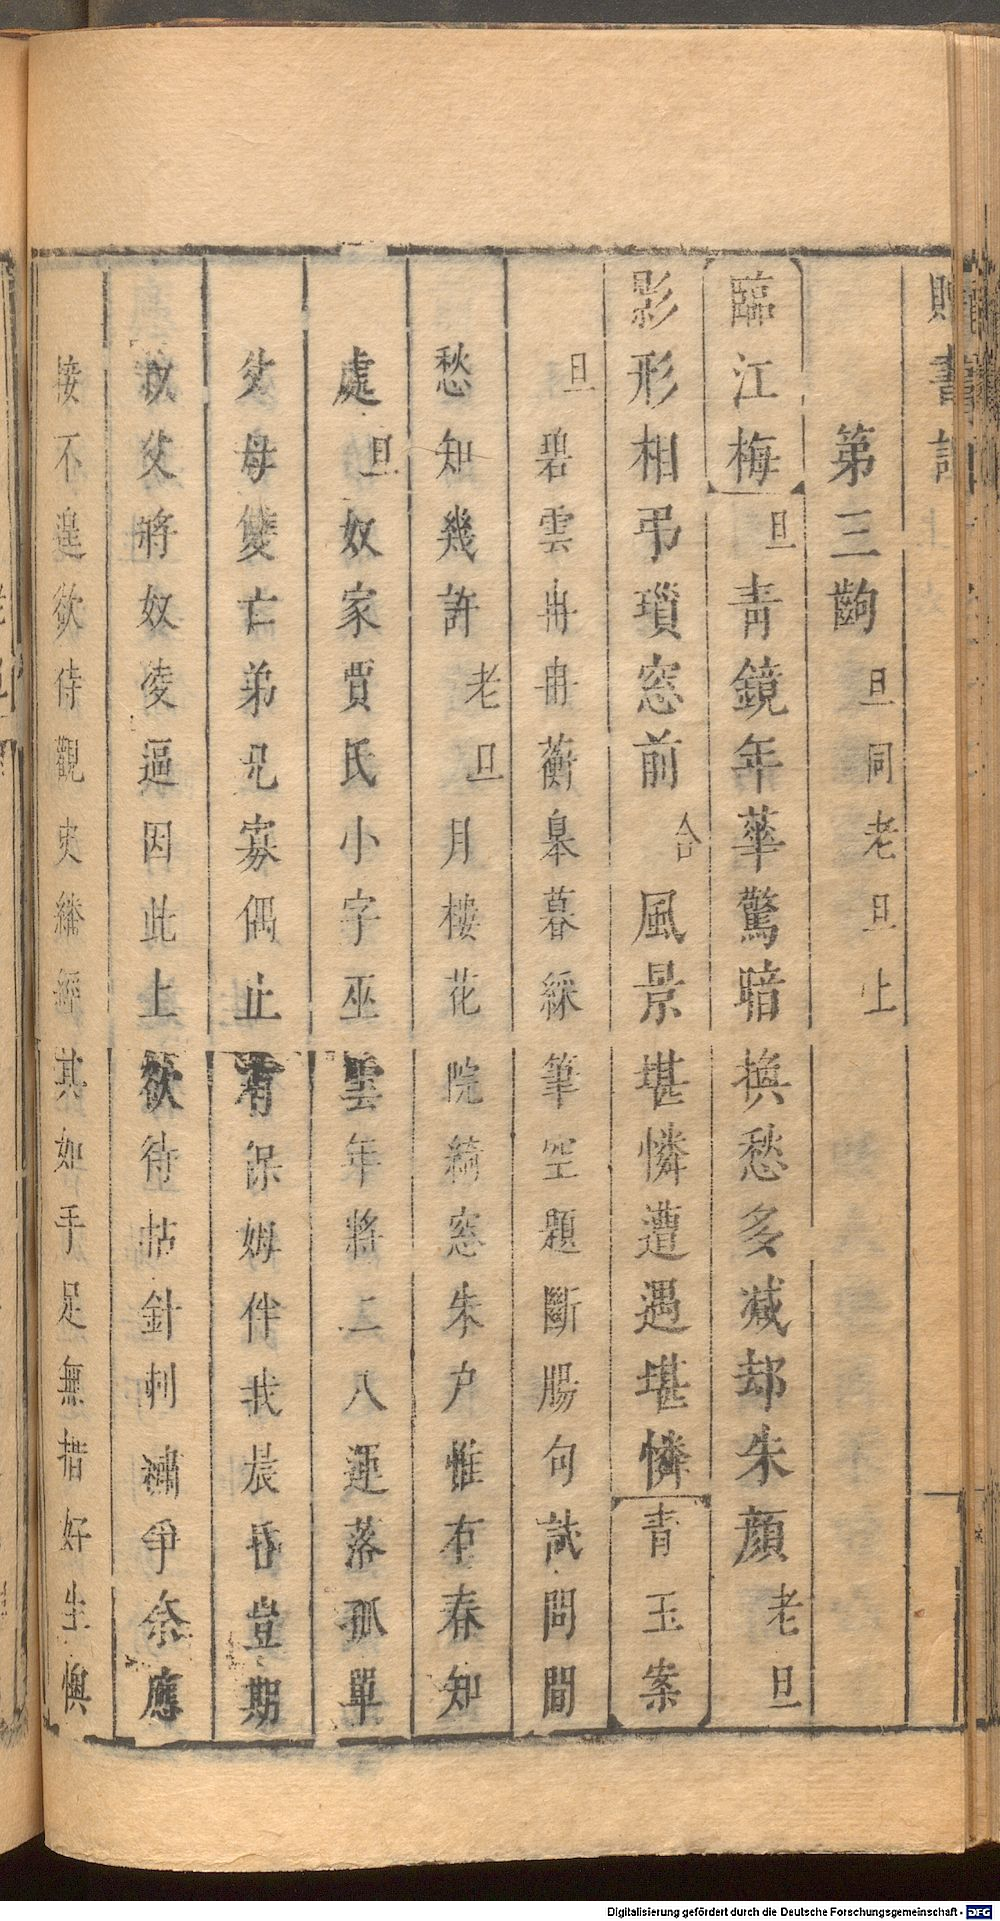 贈書記
第三齣 旦同老旦上
臨江梅 旦 青鏡年華驚暗換愁多减却朱顏 老旦
影形相弔瑣窓前 合 風景堪憐遭遇堪憐 青玉案
旦 碧雲冉冉蘅皋暮綵筆空題斷腸句試問閒
愁知幾許 老旦 月樓花院綺窓朱户惟有春知
處 旦 奴家賈氏小字巫雲年將二八運落孤單
父母雙亡弟兄寡偶止有保姆伴我晨昏豈期
叔父將奴凌逼因此上欲待拈針刺繡爭奈應
接不遑欲待觀史繙經其如手足無措好生懊
Digitalisierung gefördert durch die Deutsche Forschungsgemeinschaft - DFG